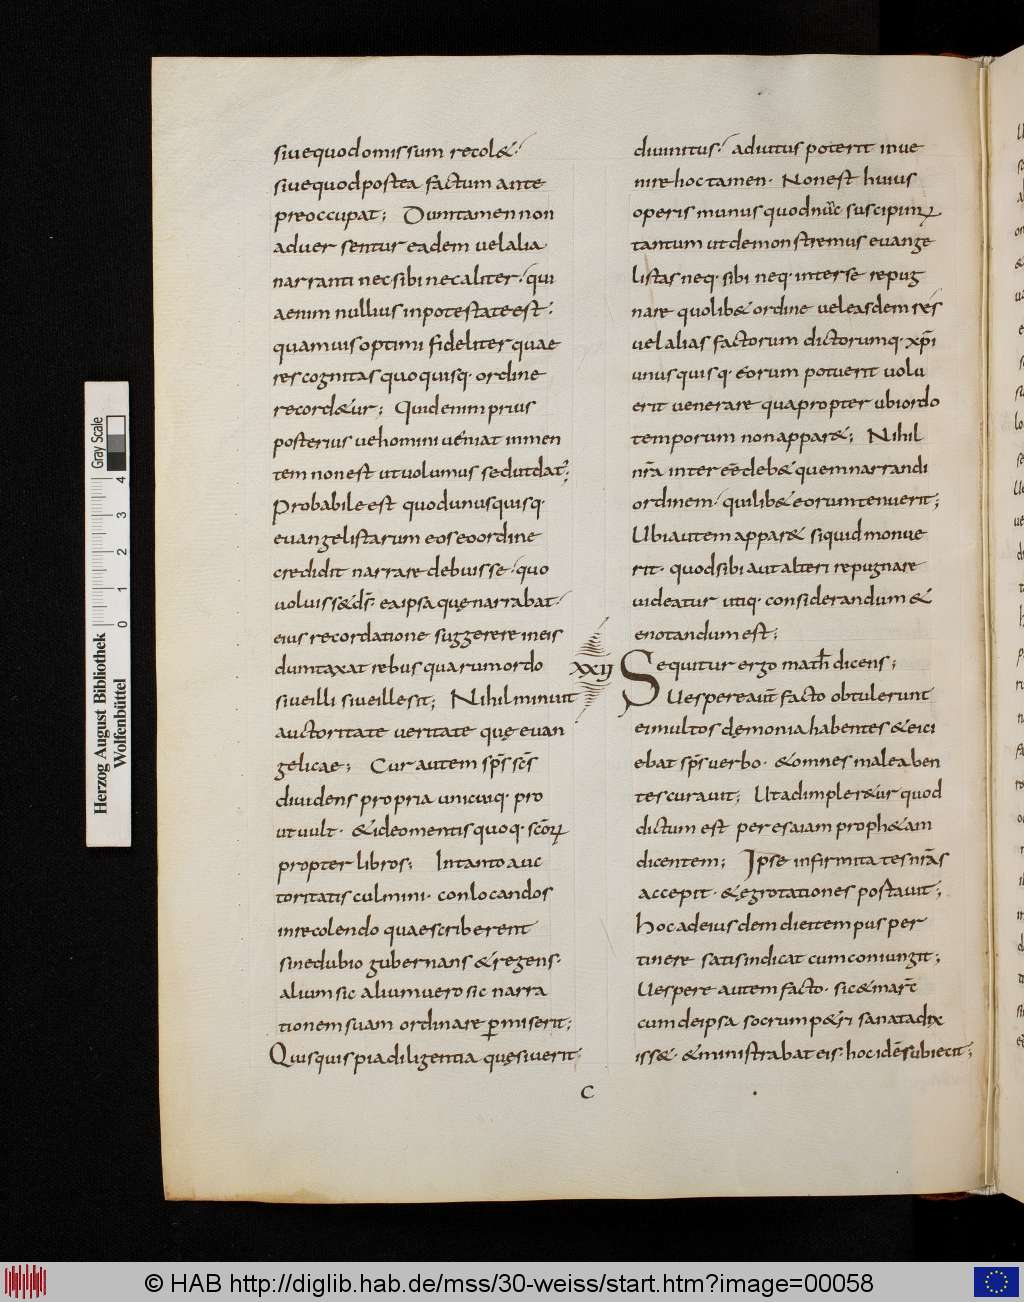 siue quod omissum recol&·
siue quod postea factum ante
preoccupat; Dum tamen non
aduersentur eadem uel alia
narranti nec sibi nec aliter· qui
a enim nullius in potestate est·
quamuis optimi fideliter quae
res cognitas quo quisq· ordine
record&ur; Quid enim prius
posterius ue homini ueniat in men
tem non est ut uolumus sed ut dat᷒;
Probabile est quod unusquisq·
euangelistarum eos eo ordine
credidit narrare debuisse· quo
uoluiss& d̅s̅· ea ipsa quę narrabat·
eius recordatione suggerere in eis
dumtaxat rebus quarum ordo
siue illi siue ille sit; Nihil minuit
auctoritate ueritate quę euan
gelicae; Cur autem sp̅s s̅c̅s
diuidens propria unicuiq· pro
ut uult· & ideo mentis quoq· sc̅oꝝ
propter libros; In tanto auc
toritatis culmini· conlocandos
in recolendo quae scriberent
sine dubio gubernans & regens·
alium sic alium uero sic narra
tionem suam ordinare ꝑmiserit;
Quisquis pia diligentia quęsiuerit·
diuinitus· adiutus poterit inue
nire hoc tamen· Non est huius
operis munus quod nu̅c suscipimꝰ
tantum ut demonstremus euange
listas neq· sibi neq· inter se repug
nare quolib& ordine uel easdem res
uel alias factorum dictorumq· xp̅i
unusquisq· eorum potuerit uolu
erit ue narrare quapropter ubi ordo
temporum non appar&; Nihil
nr̅a interee̅ deb& quem narrandi
ordinem· quilib& eorum tenuerit;
Ubi autem appar& si quid monue
rit· quod sibi aut alteri repugnare
uideatur utiq· considerandum &
enotandum est;
XXII Sequitur ergo math̅ dicens;
Uespere aut̅ facto obtulerunt
ei multos dęmonia habentes & eici
ebat sp̅s uerbo· & omnes male aben
tes curauit; Ut adimpler&ur quod
dictum est per esaiam proph&am
dicentem; Ipse infirmitates nr̅as
accepit· & ęgrotationes postauit;
Hoc ad eiusdem diei tempus per
tinere satis indicat cum coniungit;
Uespere autem facto· sic & marc̅
cum de ipsa socrum p&ri sanata dix
iss&· & ministrabat eis· hoc ide̅ subiecit;
C
Herzog August Bibliothek
Wolfenbüttel
0 1 2 3 4
Gray Scale
© HAB http://diglib.hab.de/mss/30-weiss/start.htm?image=00058